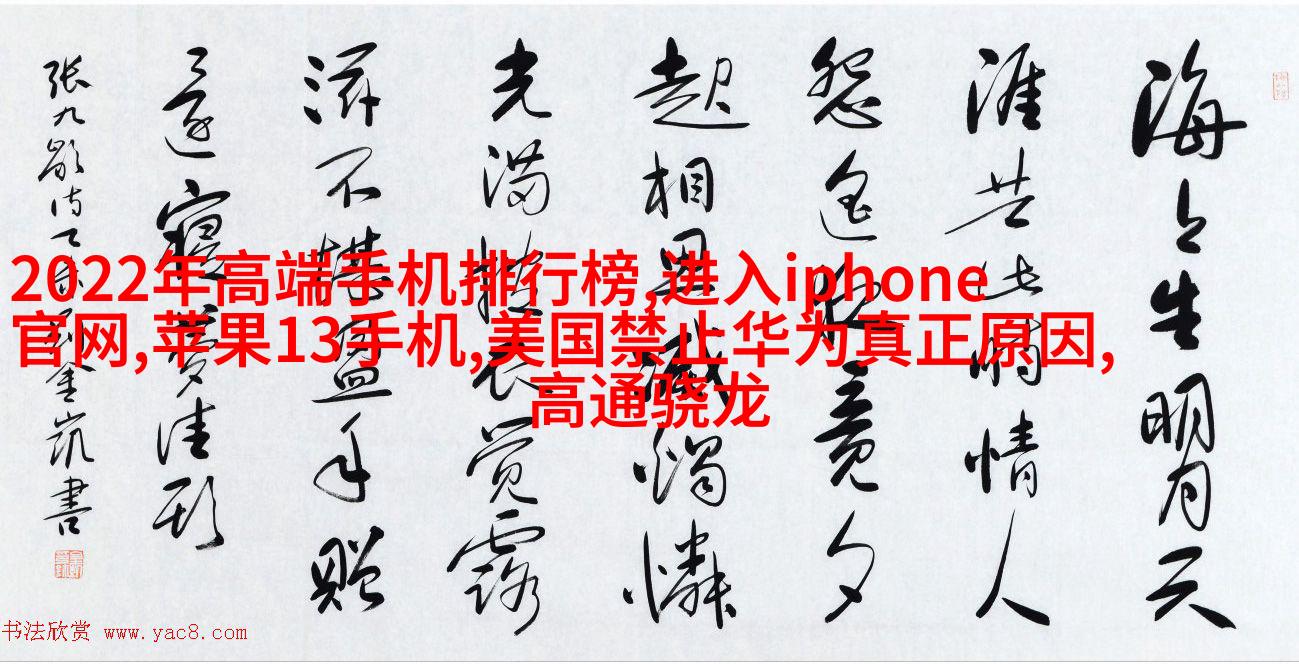 海上生明月天
涯共此時情人
怨遥夜竟夕
起相思滅燭憐
光满披衣觉露
滋不堪盈手贈
還寝夢佳期
张九龄诗
金凯書
2022年高端手机排行榜,进入iphone
官网,苹果13手机,美国禁止华为真正原因,
高通骁龙
书法欣赏 www.yac8.com